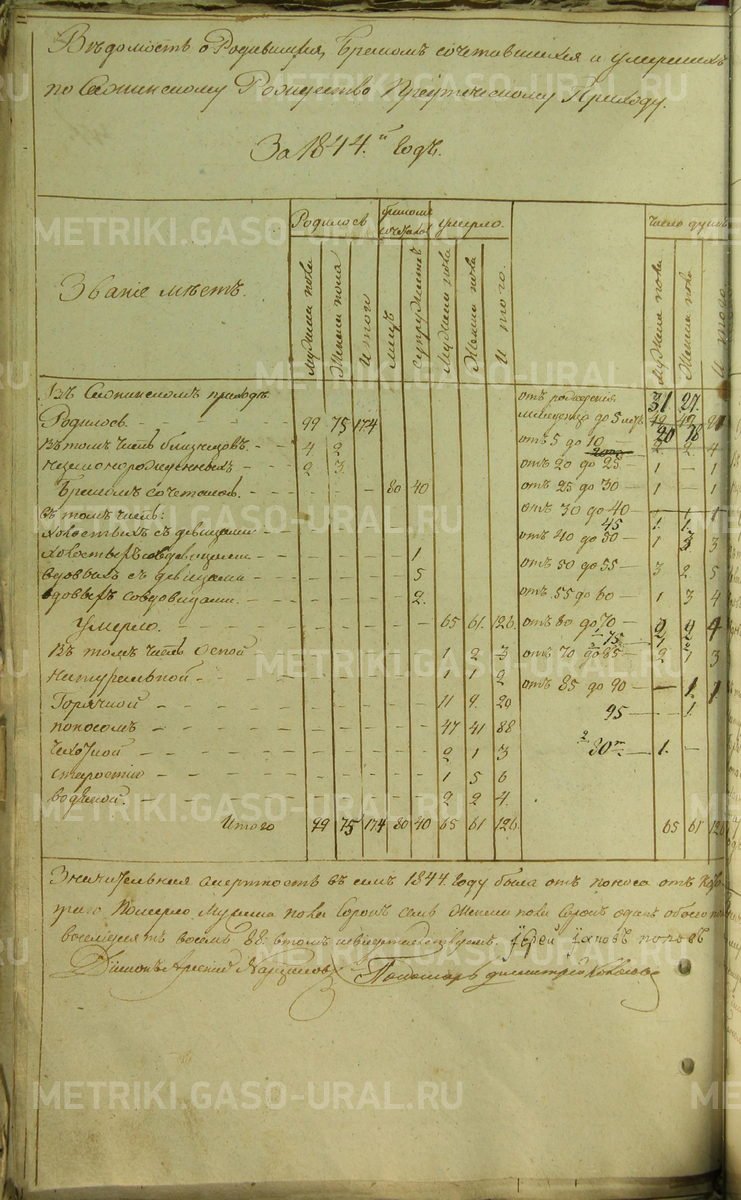 Вѣдомость о Родившихся, Бракомъ сочетавшихся и умершихъ
по Рождество Приходу.
За 1844.й Годъ.
Званіе мѣстъ.
Родилось
бракомъ
умерло.
число душъ
мужеска пола
Женска пола
Итого
лицъ
супружествъ
Мужеска пола
Женска пола
Итого.
Мужеска пола
Женска пола
Итого
Въ приходѣ
Родилось 99 75 174
Въ томъ числѣ близнецовъ. 4 2
незаконорожденныхъ 2 3
Бракомъ сочеталось. 80 40
въ томъ числѣ:
Холостыхъ съ дѣвицами
холостыхъ со вдовицами 1
вдовыхъ съ дѣвицами 5
вдовыхъ со вдовицами. 2.
Умерло. 65 61 126.
Въ томъ числѣ Оспой 1 2 3
Натуральной 1 1 2
Горячкой 11 9 20
поносомъ 47 41 88
чахоткой 2 1 3
старостію 1 5 6
водяной. 2 2 4.
Итого 99 75 174 80 40 65 61 126.
отъ рожденія 31 27.
младенца до 5 лѣтъ
отъ 5 до 10 2 2 4
отъ 20 до 25 1 — 1
отъ 25 до 30 1 — 1
отъ 30 до 40
45 1. 1.
отъ 40 до 50 1 3 3
отъ 50 до 55 3 2 5
отъ 55 до 60 1 3 4
отъ 60 до 70
75
отъ 70 до 85 2 1 3
отъ 85 до 90 — 1 1
95 — 1.
80 1. —
65 61 126
Значительная смертность въ семъ 1844. Году была отъ поноса отъ кото-
раго Померло Мужеска пола Сорокъ семь Женска пола Сорокъ одинъ обоего
восемдесятъ восемь 88 Іерей Іаковъ поповъ
Діаконъ
Пономарь димитрій
METRIKI.GASO-URAL.RU